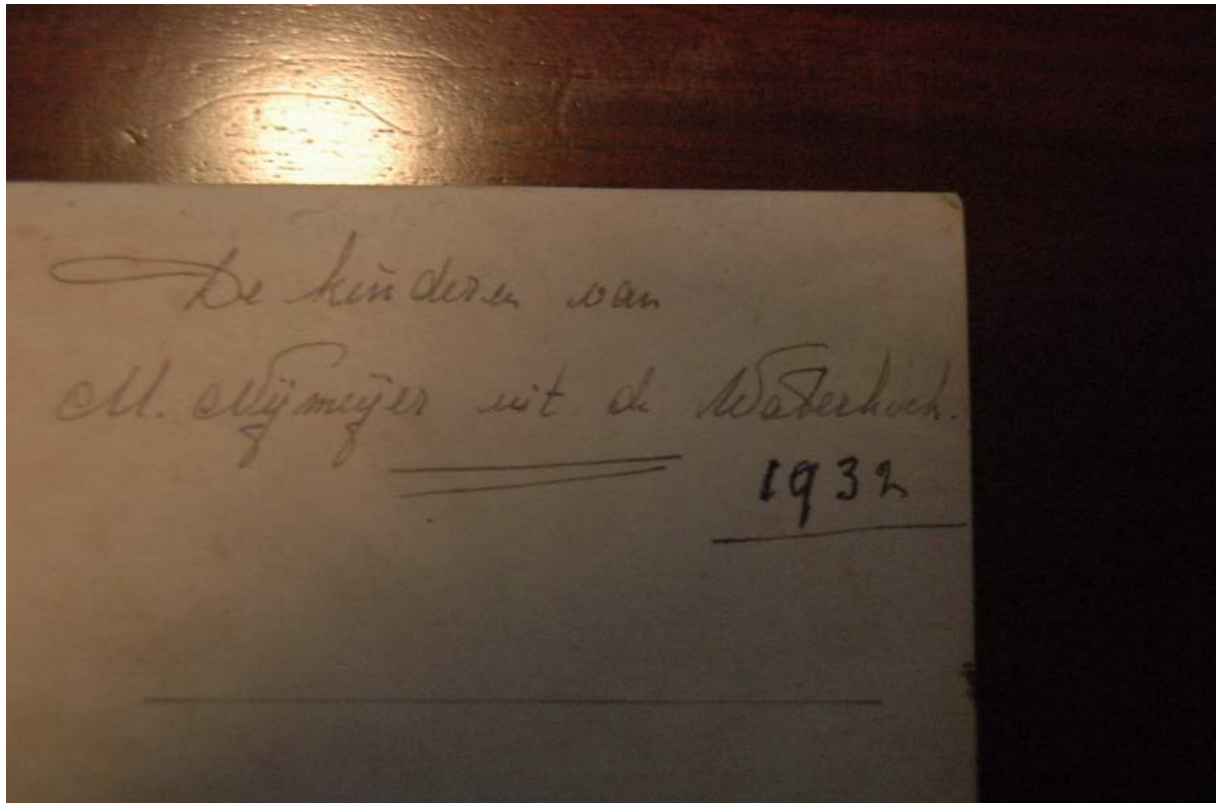 De kinderen van
M. Nijmeijer uit de Waterhoek.
1932